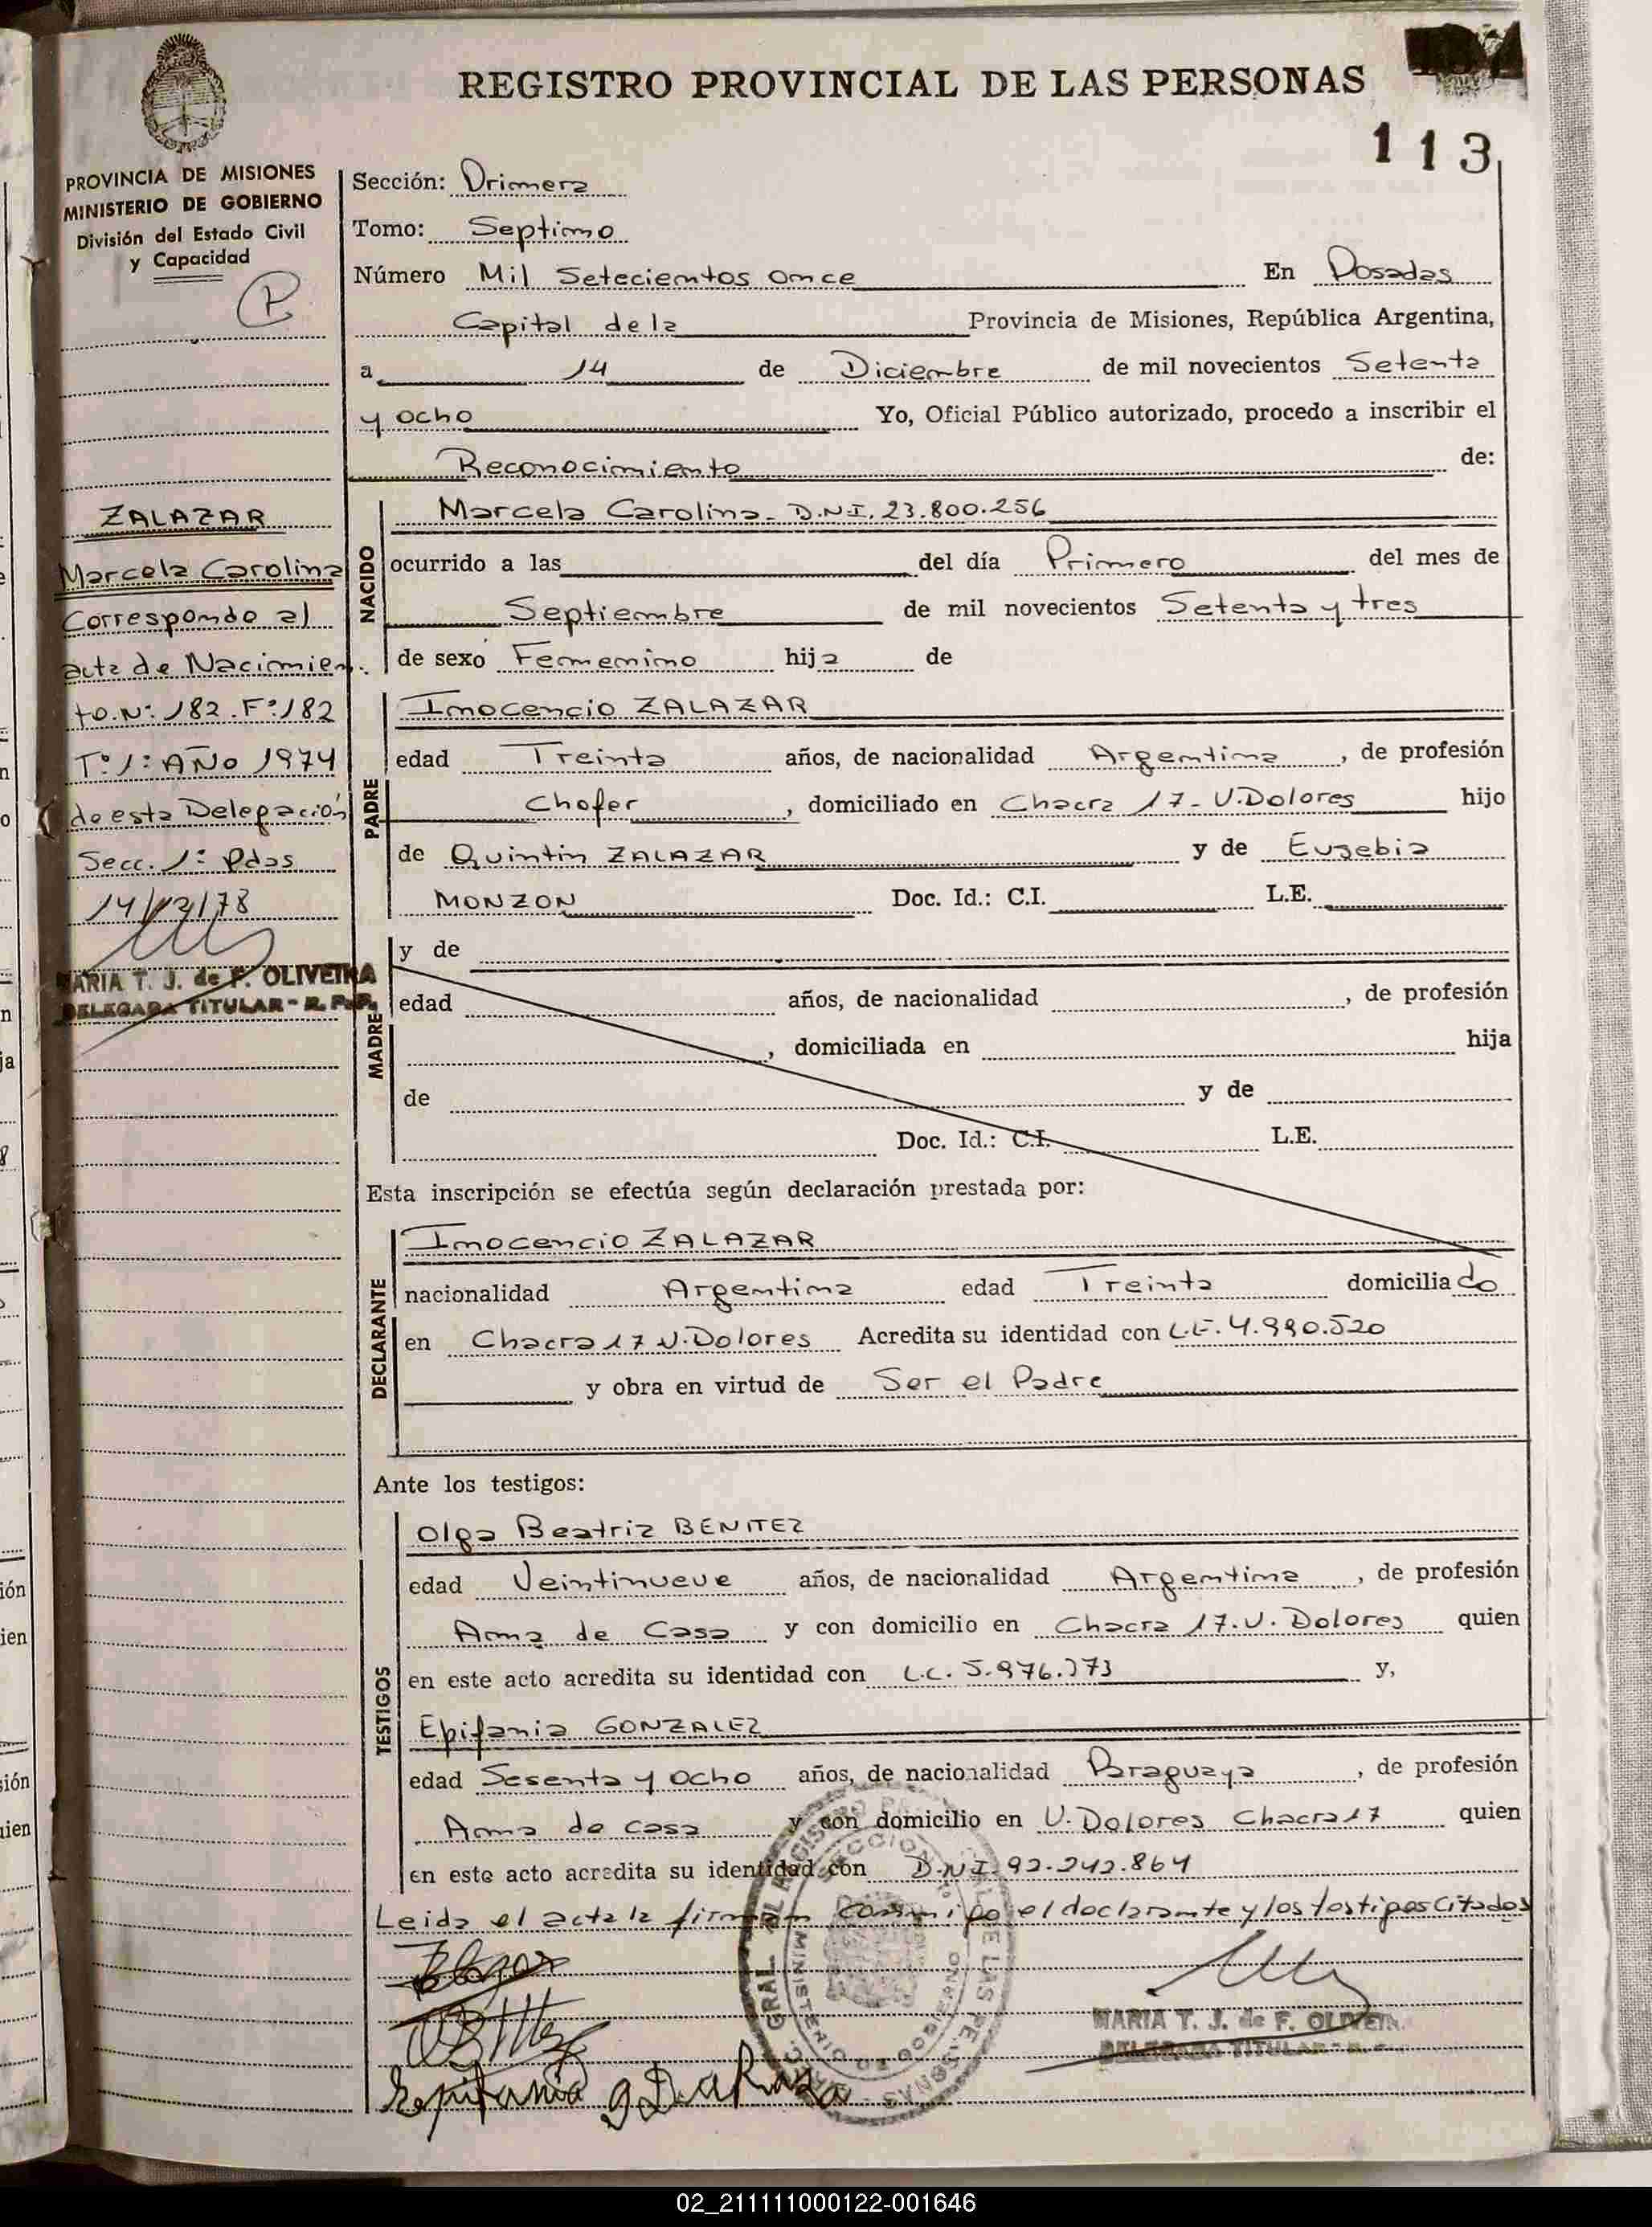 REGISTRO PROVINCIAL DE LAS PERSONAS
113
PROVINCIA DE MISIONES
MINISTERIO DE GOBIERNO
División del Estado Civil
y Capacidad
P
ZALAZAR
Marcela Carolina
Correspondo al
acta de Nacimien.
to.N°: 182.F°:182
T°:1: AÑO 1974
de esta Delegación
Secc. 1ª Pdas
14/12/78
MARIA T. J. de F. OLIVEIRA
DELEGADA TITULAR - R. P. P.
Sección: Primera
Tomo: Septimo
Número Mil Setecientos once En Posadas
Capital de la Provincia de Misiones, República Argentina,
a 14 de Diciembre de mil novecientos Setenta
y ocho Yo, Oficial Público autorizado, procedo a inscribir el
Reconocimiento de:
NACIDO
Marcela Carolina - D.N.I. 23.800.256
ocurrido a las del día Primero del mes de
Septiembre de mil novecientos Setenta y tres
de sexo Femenino hija de
PADRE
Inocencio ZALAZAR
edad Treinta años, de nacionalidad Argentina, de profesión
Chofer, domiciliado en Chacra 17 - V.Dolores hijo
de Quintin ZALAZAR y de Eusebia
MONZON Doc. Id.: C.I. L.E.
MADRE
y de
edad años, de nacionalidad , de profesión
, domiciliada en hija
de y de
Doc. Id.: C.I. L.E.
Esta inscripción se efectúa según declaración prestada por:
DECLARANTE
Inocencio ZALAZAR
nacionalidad Argentina edad Treinta domiciliado
en Chacra 17 V.Dolores Acredita su identidad con L.E. 4.990.520
y obra en virtud de Ser el Padre
Ante los testigos:
TESTIGOS
Olga Beatriz BENITEZ
edad Veintinueve años, de nacionalidad Argentina, de profesión
Ama de Casa y con domicilio en Chacra 17.V. Dolores quien
en este acto acredita su identidad con L.C. 5.976.373 y,
Epifania GONZALEZ
edad Sesenta y ocho años, de nacionalidad Paraguaya, de profesión
Ama de casa y con domicilio en V. Dolores Chacra 17 quien
en este acto acredita su identidad con D.N.I. 92.242.864
Leida el acta la firman conmigo el declarante y los testigos citados
MARIA T. J. de F. OLIVEIR
DELEGADA TITULAR - R.
Epifania g
02_211111000122-001646